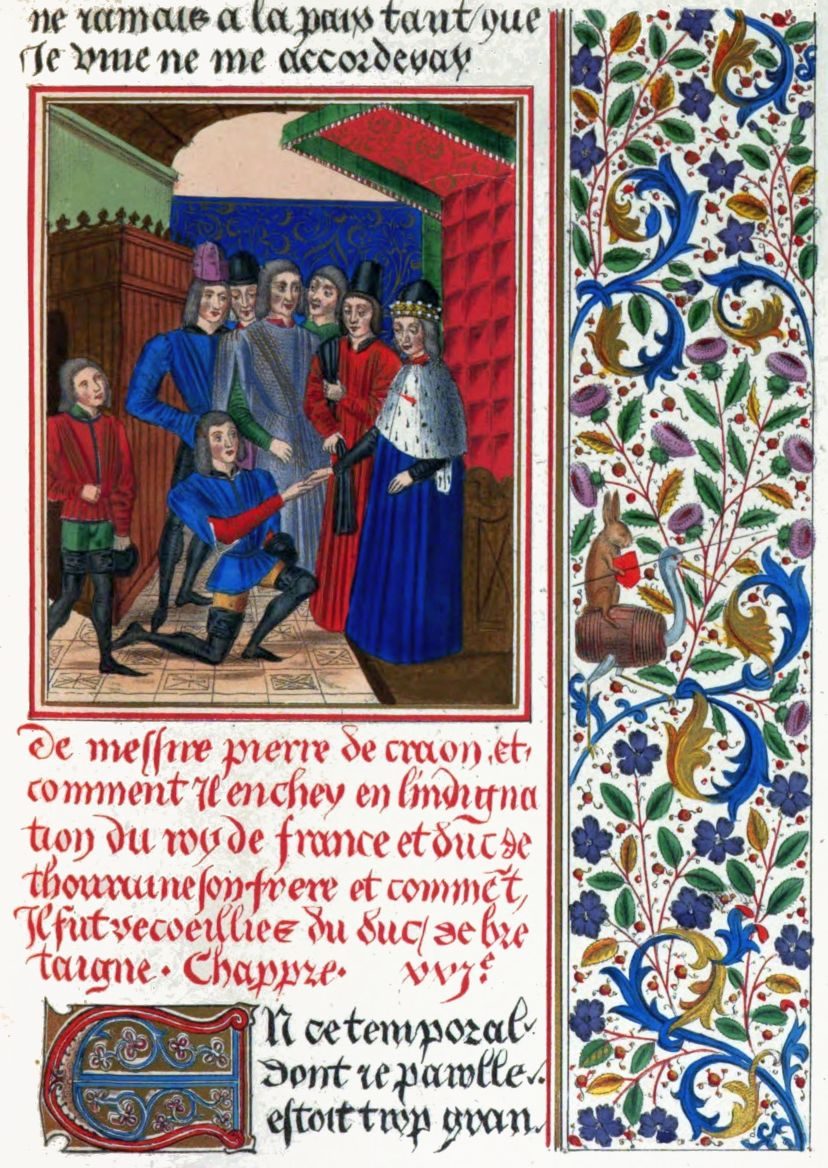 ne iamais a la paix tant que
Je viue ne me accorderay
De messire pierre de craon, et
comment Il enchey en lindigna
tion du roy de france et duc de
thourraine son frere et commēt,
Il fut recoeillies du duc de bre
taigne. Chappre. xvjᵉ
En ce temporal
dont ie parolle
estoit trop gran